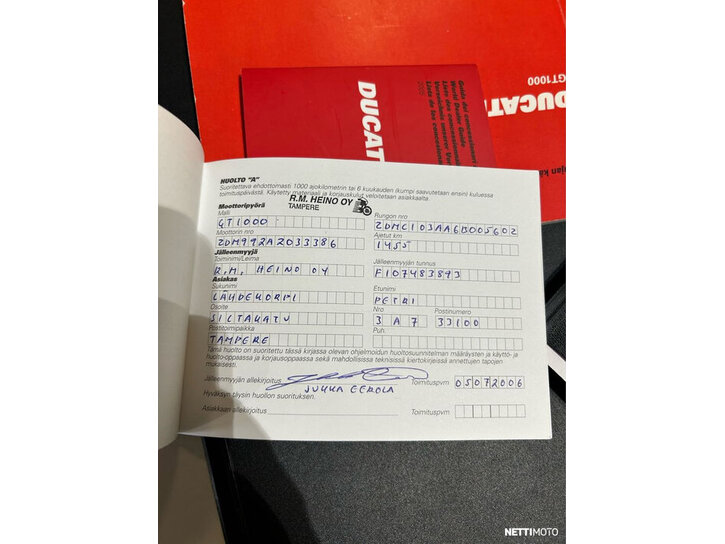 GT1000
DUCATI
jan kä
DUCATI
Guida dei concessionari
World Dealer Guide
2005
HUOLTO "A"
Suoritettava ehdottomasti 1000 ajokilometrin tai 6 kuukauden (kumpi saavutetaan ensin) kuluessa
toimituspäivästä. Käytetty materiaali ja korjauskulut veloitetaan asiakkaalta.
R.M. HEINO OY
TAMPERE
Moottoripyörä
Malli Rungon nro
GT1000 ZDMC103AA6B005602
Moottorin nro Ajetut km
ZDM992A2033386 1455
Jälleenmyyjä
Toiminimi/Leima Jälleenmyyjän tunnus
R.M. HEINO OY FI07483893
Asiakas
Sukunimi Etunimi
LÄHDEKORPI PETRI
Osoite Nro Postinumero
SILTAKATU 3 A 7 33100
Postitoimipaikka Puh.
TAMPERE
Tämä huolto on suoritettu tässä kirjassa olevan ohjelmoidun huoltosuunnitelman määräysten ja käyttö- ja
huolto-oppaassa ja korjausoppaassa sekä mahdollisissa teknisissä kiertokirjeissä annettujen tapojen
mukaisesti.
Jälleenmyyjän allekirjoitus Toimituspvm 05072006
JUKKA EEROLA
Hyväksyn täysin huollon suorituksen.
Asiakkaan allekirjoitus Toimituspvm
NETTIMOTO